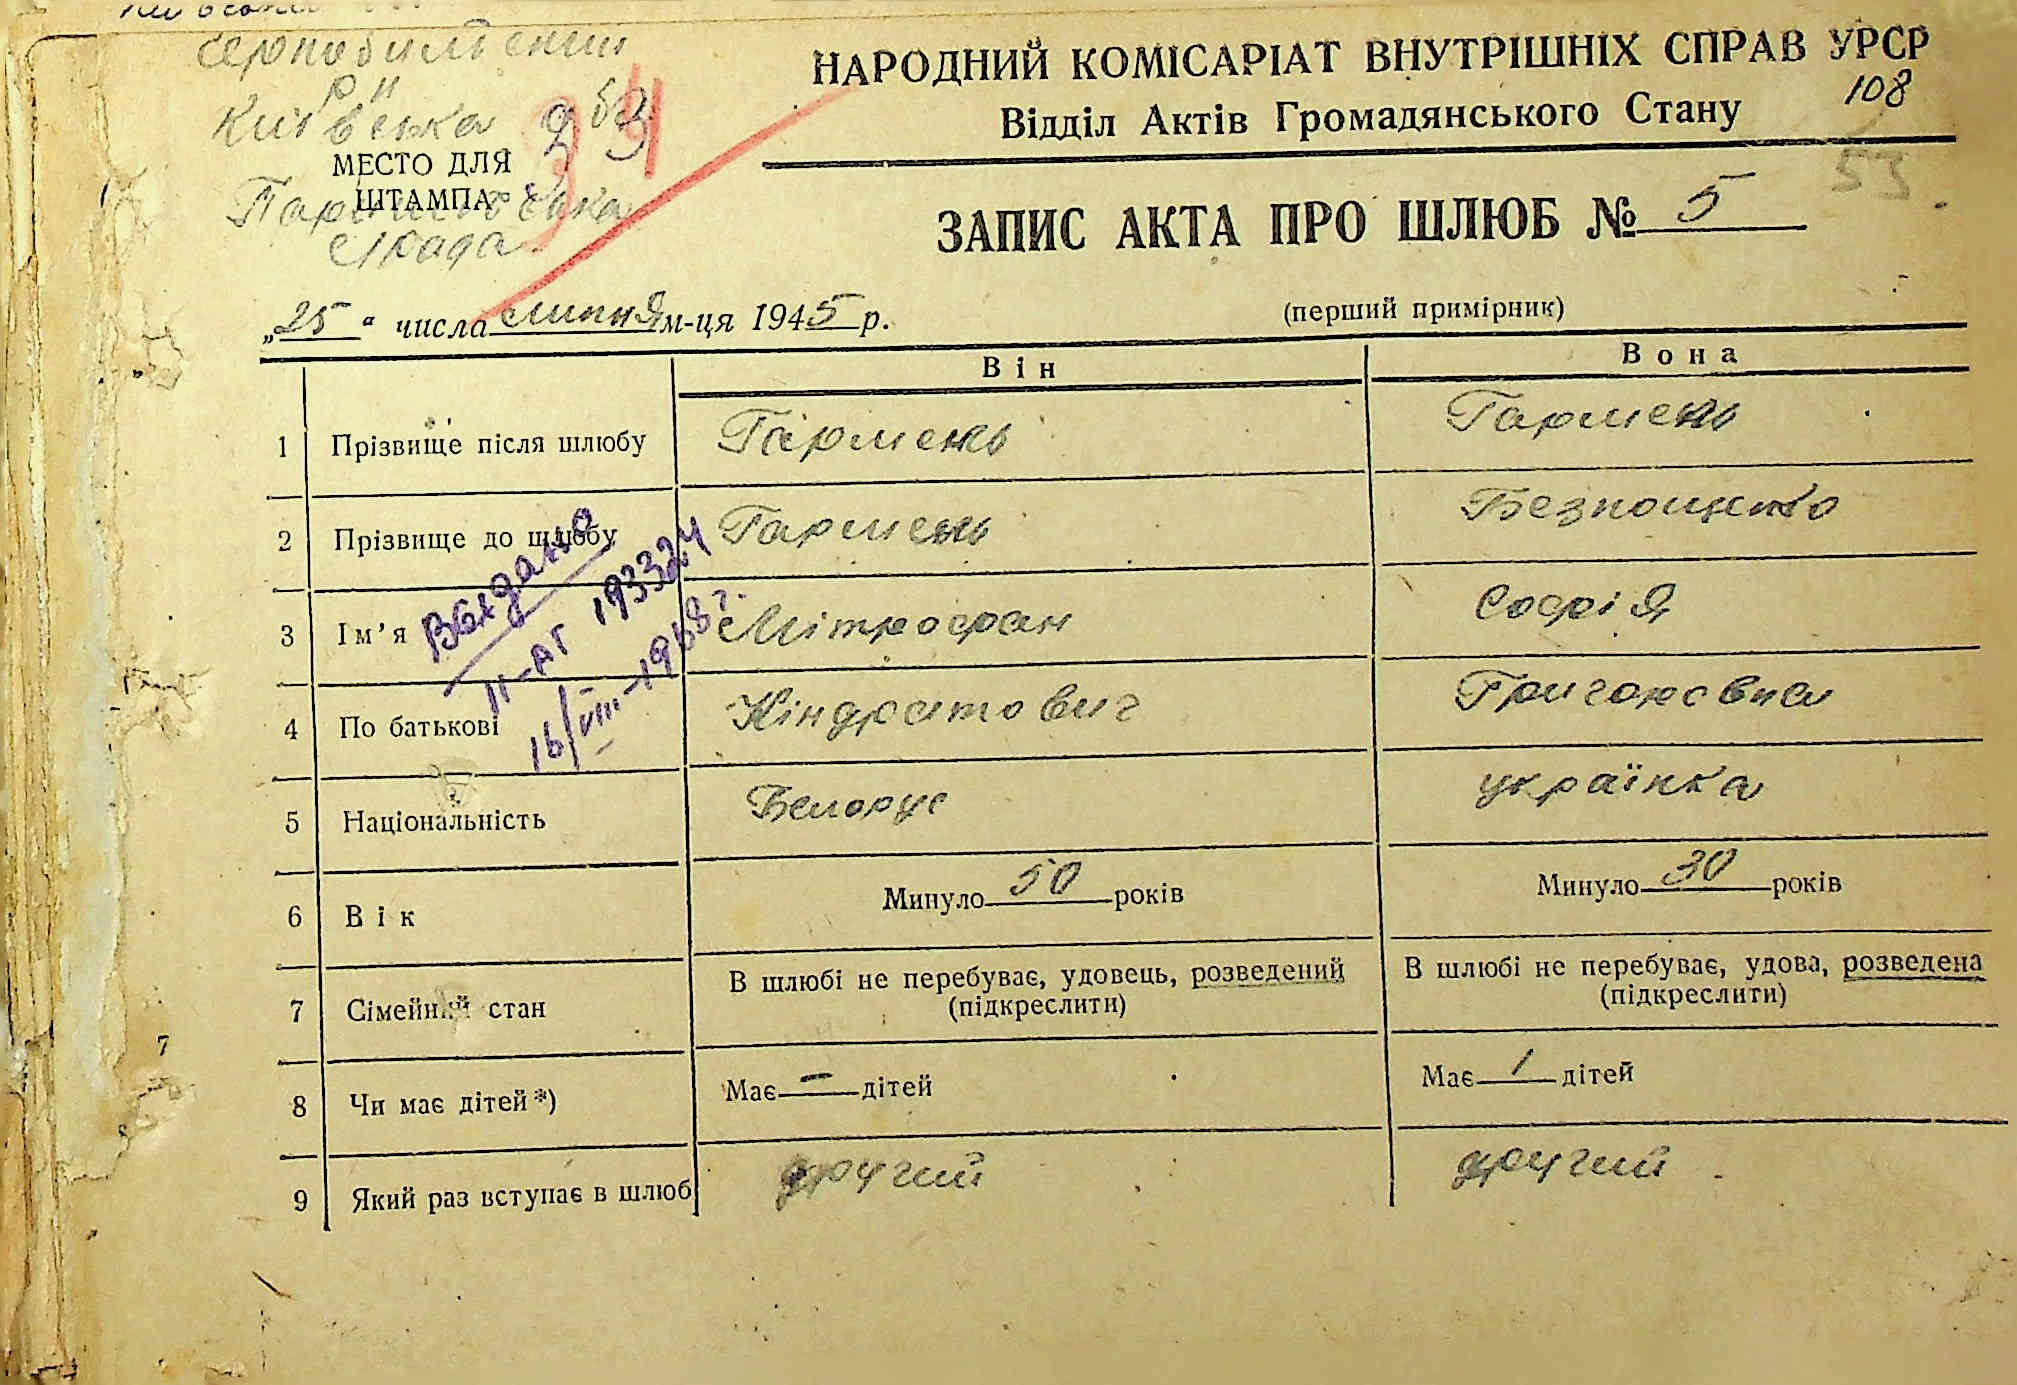 р н
Київська обл
34
МЕСТО ДЛЯ
ШТАМПА
с/рада
НАРОДНИЙ КОМІСАРІАТ ВНУТРІШНІХ СПРАВ УРСР
108
Відділ Актів Громадянського Стану
53
ЗАПИС АКТА ПРО ШЛЮБ № 5
„25“ числа липня м-ця 1945 р.
(перший примірник)
Він Вона
1 Прізвище після шлюбу Гармень Гармень
2 Прізвище до шлюбу Гармень Безпощенко
3 Ім’я Мітрофан Софія
4 По батькові Кіндратович Григоровна
5 Національність Белорус українка
6 Вік Минуло 50 років Минуло 30 років
7 Сімейний стан В шлюбі не перебуває, удовець, розведений (підкреслити) В шлюбі не перебуває, удова, розведена (підкреслити)
8 Чи має дітей*) Має — дітей Має 1 дітей
9 Який раз вступає в шлюб другий другий
Выдано
II-АГ 193324
16/VIII-1968 г.
7